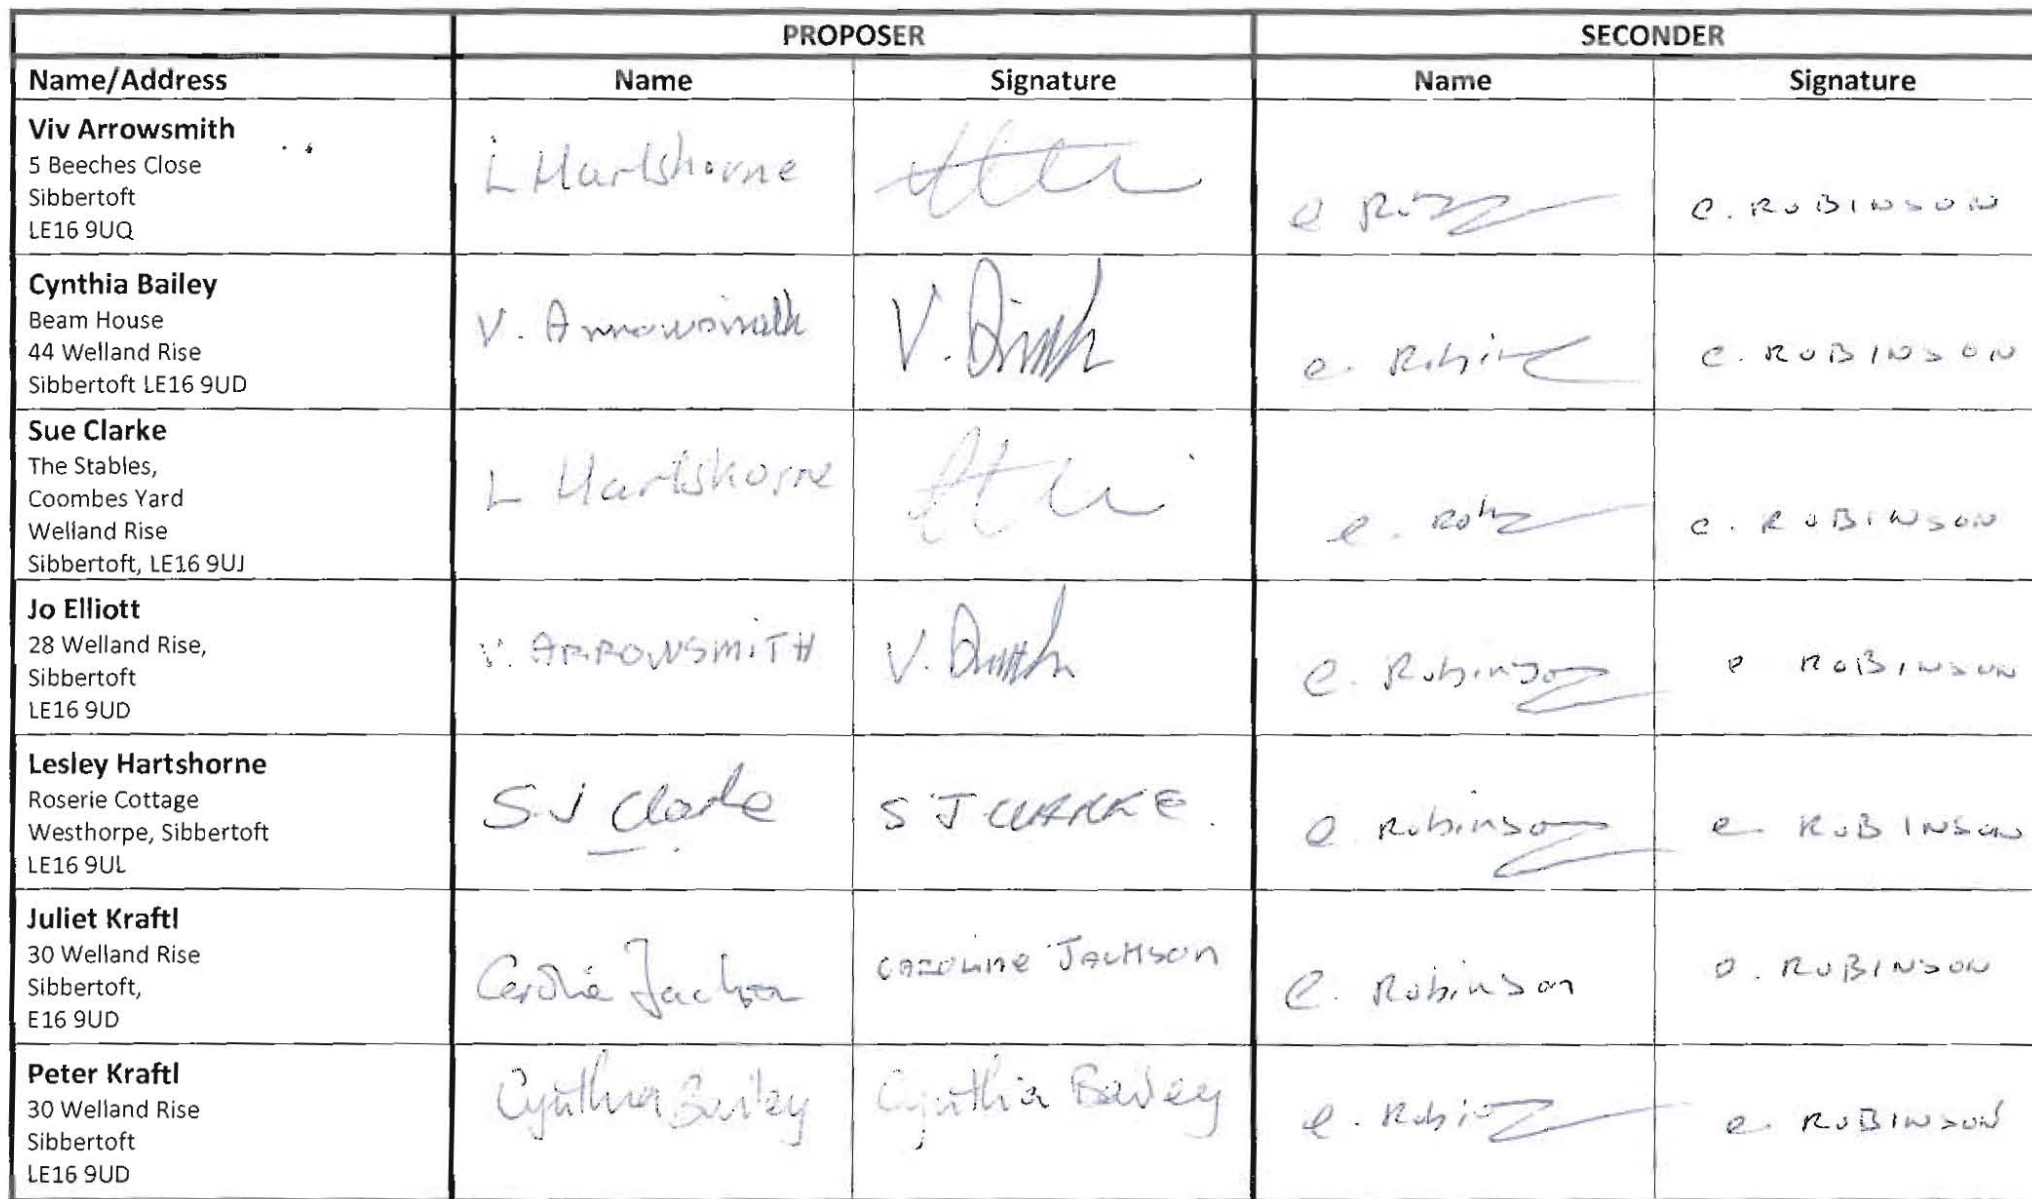 PROPOSER SECONDER
Name/Address Name Signature Name Signature
Viv Arrowsmith
5 Beeches Close
Sibbertoft
LE16 9UQ
L Hartshorne
C. ROBINSON
Cynthia Bailey
Beam House
44 Welland Rise
Sibbertoft LE16 9UD
V. Arrowsmith
C. ROBINSON
Sue Clarke
The Stables,
Coombes Yard
Welland Rise
Sibbertoft, LE16 9UJ
L Hartshorne
C. ROBINSON
Jo Elliott
28 Welland Rise,
Sibbertoft
LE16 9UD
V. ARROWSMITH
C. Robinson
C ROBINSON
Lesley Hartshorne
Roserie Cottage
Westhorpe, Sibbertoft
LE16 9UL
S J Clarke
S J CLARKE.
C. Robinson
C ROBINSON
Juliet Kraftl
30 Welland Rise
Sibbertoft,
E16 9UD
Caroline Jackson
CAROLINE JACKSON
C. Robinson
C. ROBINSON
Peter Kraftl
30 Welland Rise
Sibbertoft
LE16 9UD
Cynthia Bailey
Cynthia Bailey
C. ROBINSON